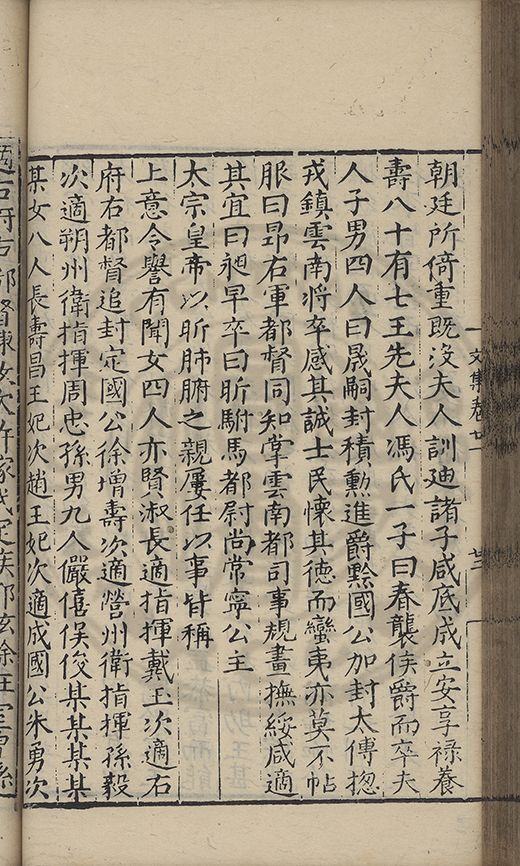 文集卷廿一
廿三
朝廷所倚重既沒夫人訓廸諸子咸底成立安享祿養
壽八十有七王先夫人馮氏一子曰春襲侯爵而卒夫
人子男四人曰晟嗣封積勲進爵黔國公加封太傅揔
戎鎮雲南將卒感其誠士民懷其德而蠻夷亦莫不帖
服曰昂右軍都督同知掌雲南都司事規畫撫綏咸適
其宜曰昶早卒曰昕駙馬都尉尚常寧公主
太宗皇帝以昕肺腑之親屢任以事皆稱
上意令譽有聞女四人亦賢淑長適指揮戴王次適右
府右都督追封定國公徐增壽次適營州衛指揮孫毅
次適朔州衛指揮周忠孫男九人儼僖俁俊某某某某
某女八人長壽昌王妃次趙王妃次適成國公朱勇次